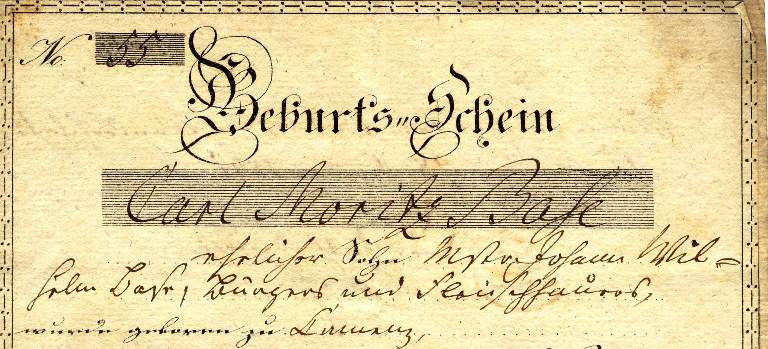 No. 55
Geburts=Schein
Carl Moritz Base
ehelicher Sohn Mstr. Johann Wil=
helm Base, Bürgers und Fleischhauers,
wurde geboren zu Camenz,